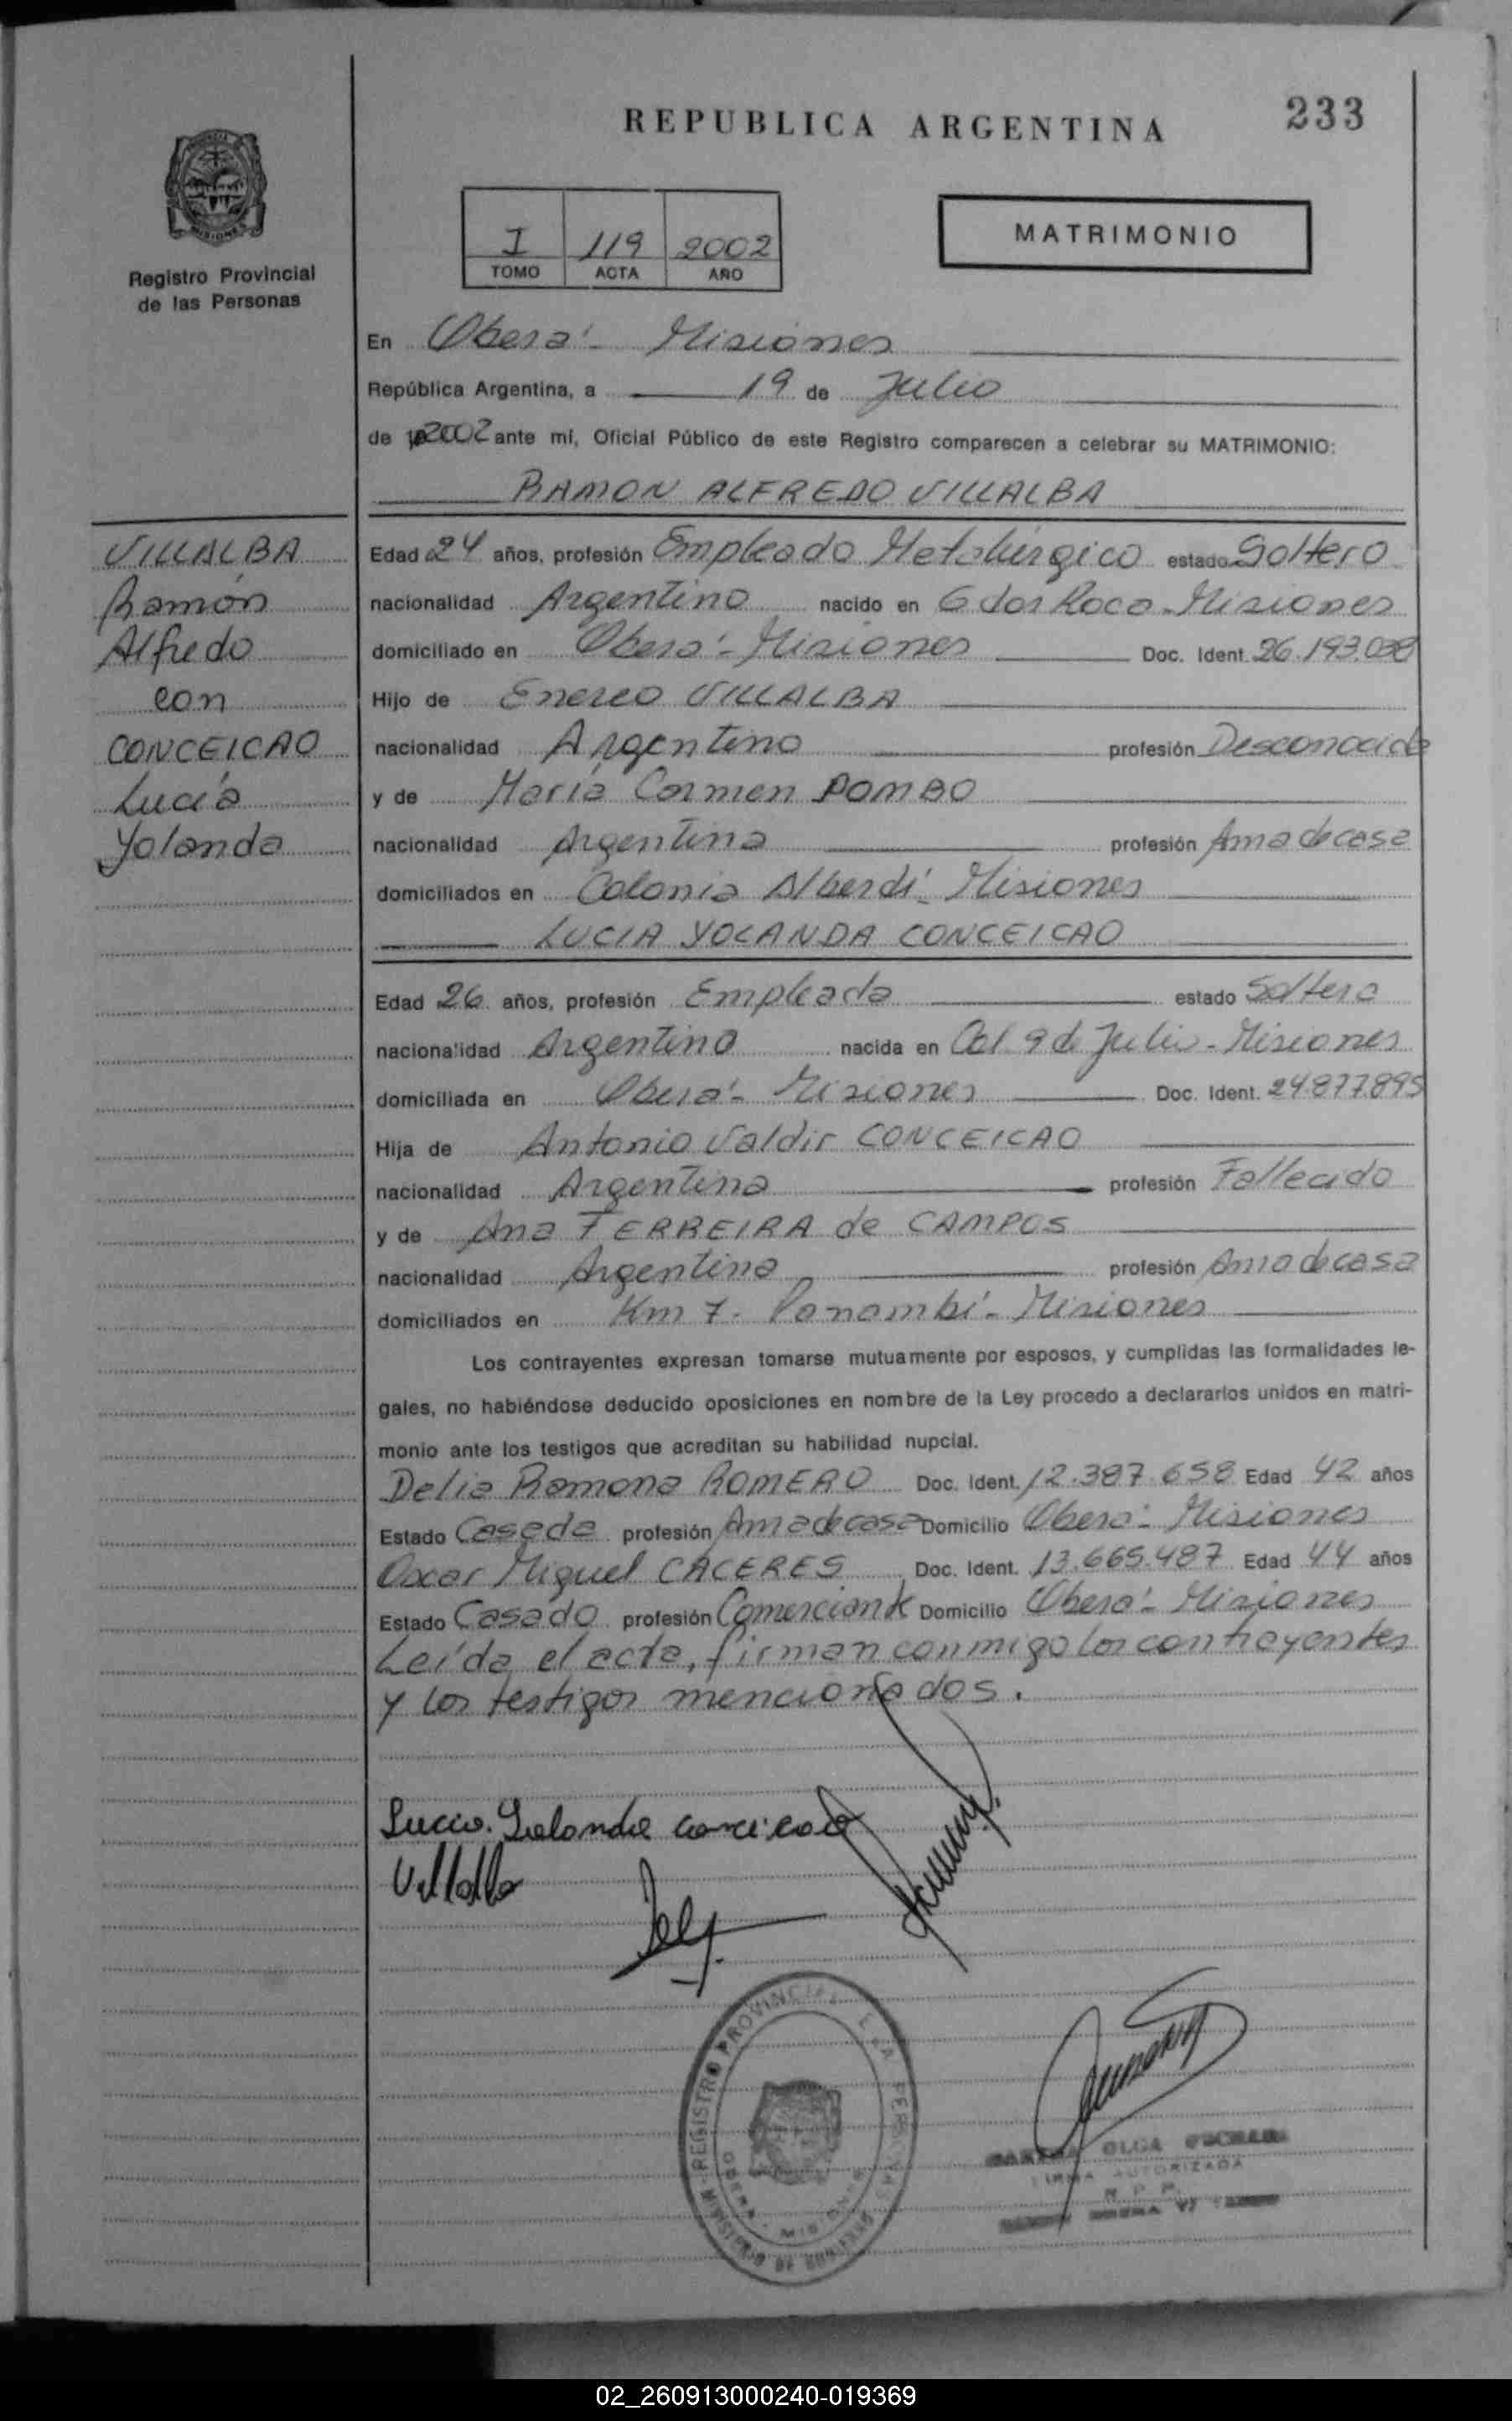 REPUBLICA ARGENTINA
233
MISIONES
Registro Provincial
de las Personas
I 119 2002
TOMO ACTA AÑO
MATRIMONIO
En Oberá - Misiones
República Argentina, a 19 de Julio
de 2002 ante mí, Oficial Público de este Registro comparecen a celebrar su MATRIMONIO:
RAMON ALFREDO VILLALBA
VILLALBA
Ramón
Alfredo
con
CONCEICAO
Lucía
Yolanda
Edad 24 años, profesión Empleado Metalúrgico estado Soltero
nacionalidad Argentino nacido en Gdor Roca - Misiones
domiciliado en Oberá - Misiones Doc. Ident. 26.193.038
Hijo de VILLALBA
nacionalidad Argentino profesión Desconocida
y de María Carmen POMBO
nacionalidad Argentina profesión Ama de casa
domiciliados en Colonia Alberdi - Misiones
LUCIA YOLANDA CONCEICAO
Edad 26 años, profesión Empleada estado Soltera
nacionalidad Argentina nacida en Col. 9 de Julio - Misiones
domiciliada en Oberá - Misiones Doc. Ident. 24.877.895
Hija de Antonio Valdir CONCEICAO
nacionalidad Argentina profesión Fallecido
y de Ana FERREIRA de CAMPOS
nacionalidad Argentina profesión Ama de casa
domiciliados en Km 7 - Panambí - Misiones
Los contrayentes expresan tomarse mutuamente por esposos, y cumplidas las formalidades le-
gales, no habiéndose deducido oposiciones en nombre de la Ley procedo a declararlos unidos en matri-
monio ante los testigos que acreditan su habilidad nupcial.
Delia Ramona ROMERO Doc. Ident. 12.387.658 Edad 42 años
Estado Casada profesión Ama de casa Domicilio Oberá - Misiones
Oscar Miguel CACERES Doc. Ident. 13.665.487 Edad 44 años
Estado Casado profesión Comerciante Domicilio Oberá - Misiones
Leída el acta, firman conmigo los contrayentes
y los testigos mencionados.
Lucia Yolanda Conceicao
Villalba
REGISTRO PROVINCIAL PERSONAS
OBERA - MISIONES
OLGA
FIRMA AUTORIZADA
R. P. P.
02_260913000240-019369